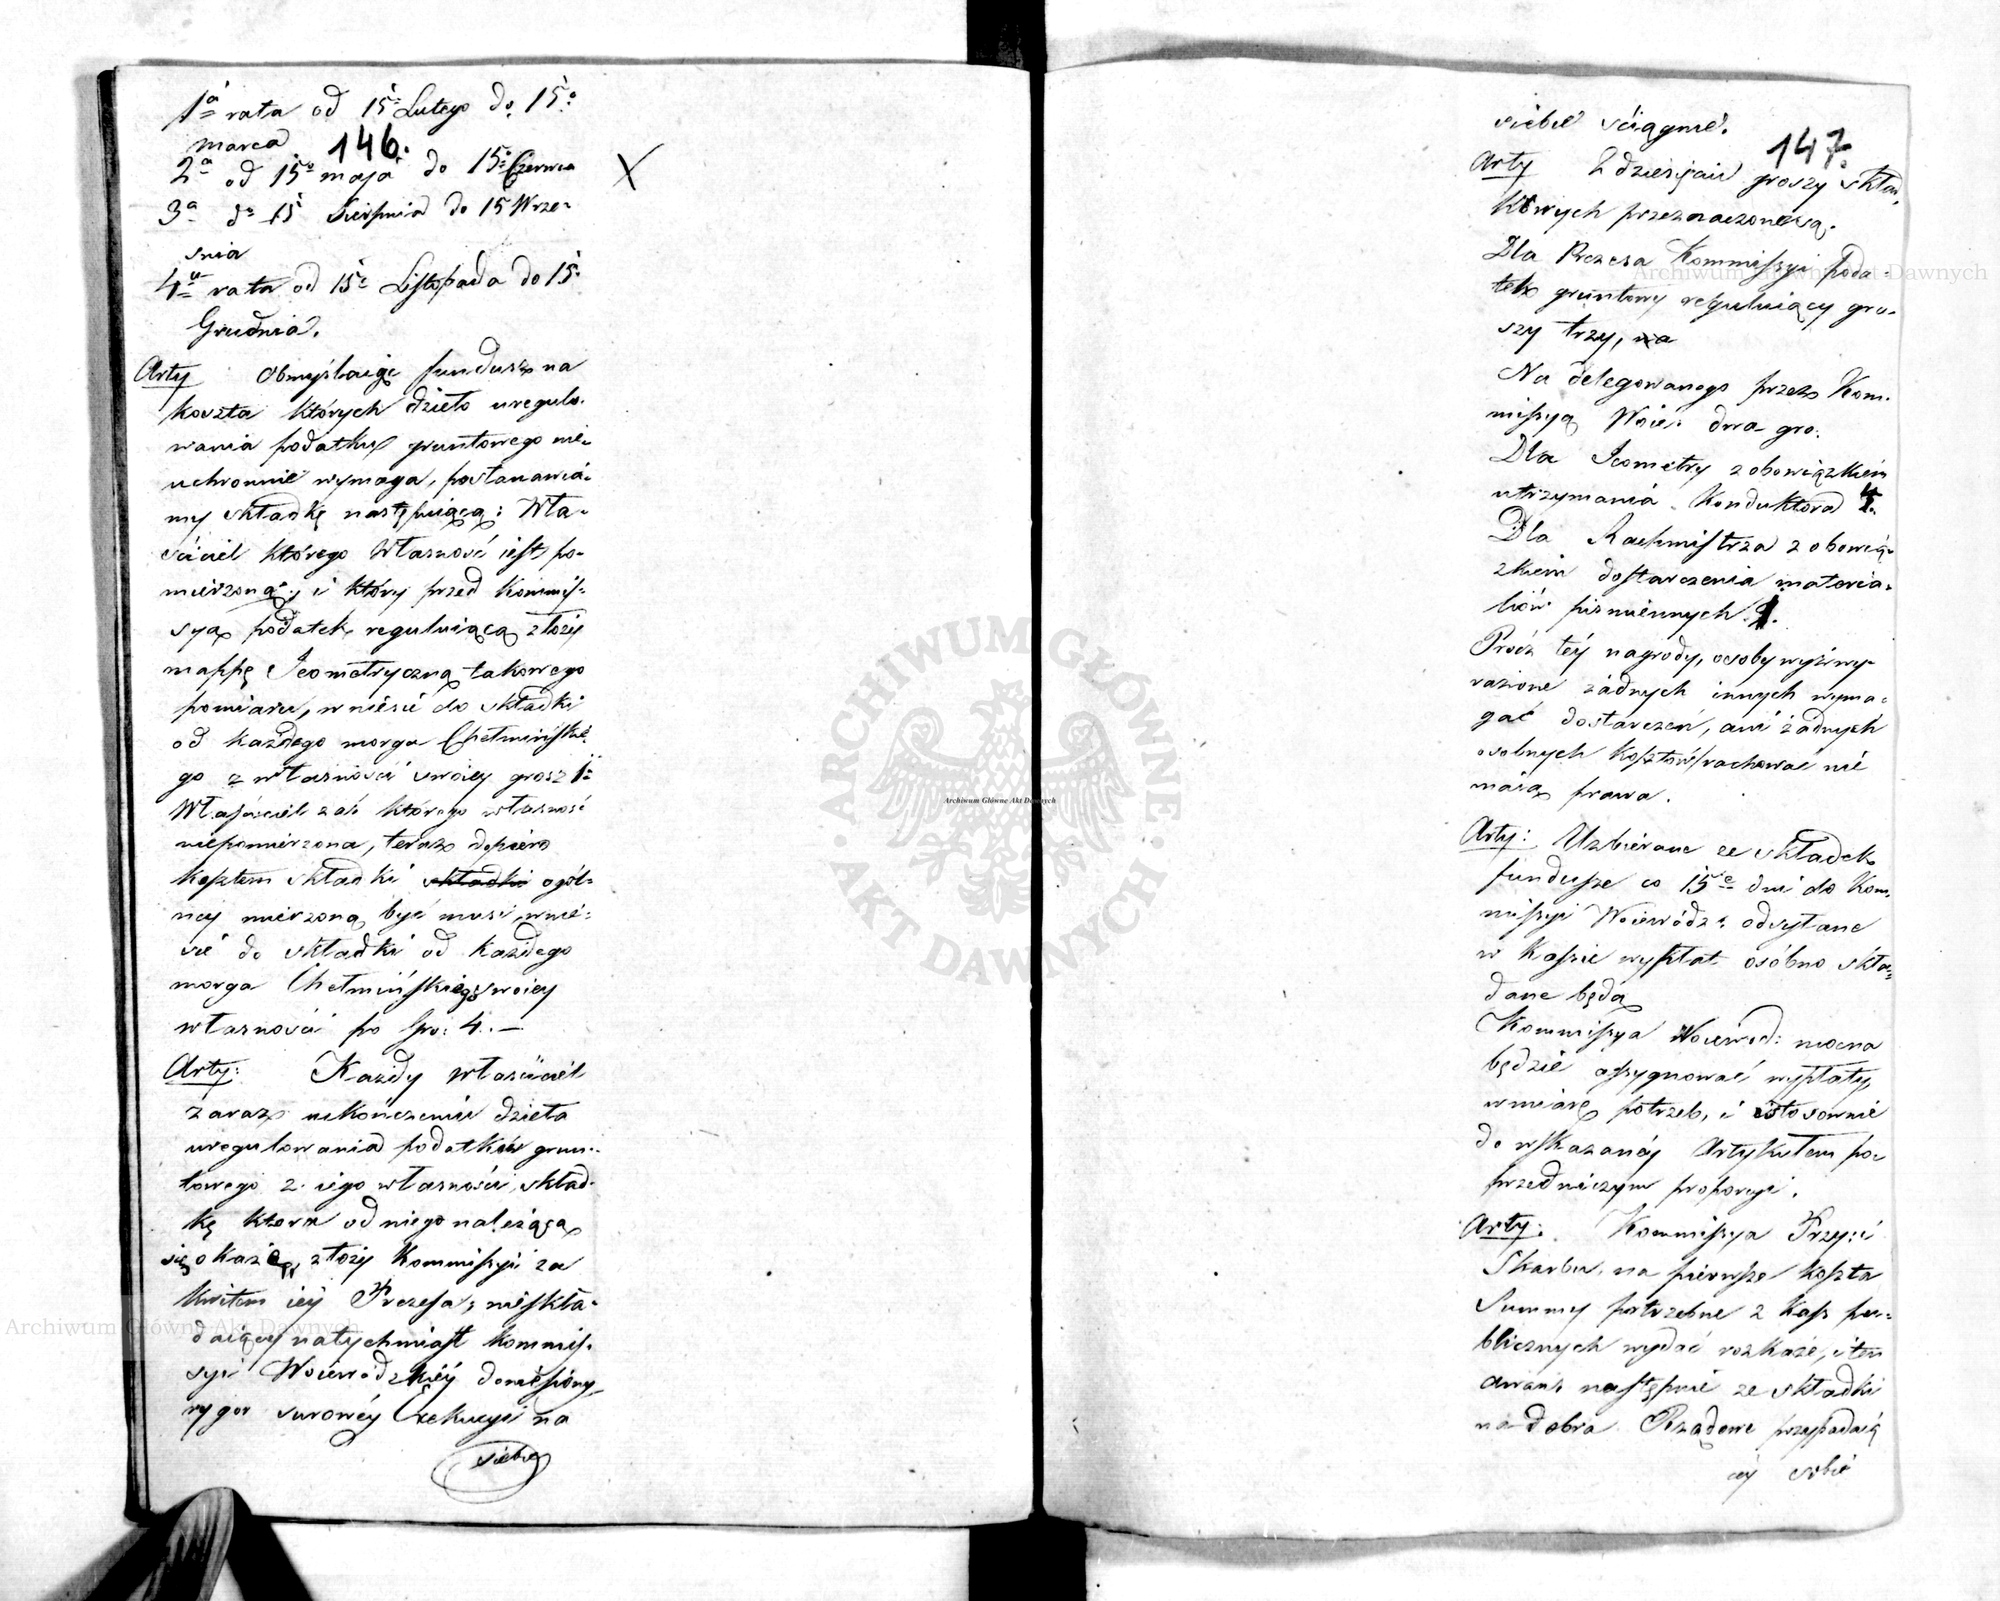 1ª rata od 15º Lutego do 15º
marca
146.
2ª od 15º maja do 15º Czerwca
3ª do 15 Sierpnia do 15 Wrze-
snia
4ª rata od 15º Listopada do 15º
Grudnia.
Arty Obmyślaiąc fundusz na
koszta których dzieło uregulo-
wania podatku gruntowego nie-
uchronnie wymaga, postanawia-
my składkę następuiącą: Wła-
ściciel którego własność iest po-
mierzoną, i który przed Kommis-
syą podatek reguluiącą złoży
mappę Jeometryczną takowego
pomiaru, wniesie do składki
od każdego morga Chełmińskie-
go z własności swoiey grosz 1º
Właściciel zaś którego własność
niepomierzona, teraz dopiero
kosztem składki składki ogól-
ney mierzoną być musi, wnie-
sie do składki od każdego
morga Chełmińskiego swoiey
własności po Gro: 4. —
Arty: Każdy właściciel
zaraz ukończeniu dzieła
uregulowania podatków grun-
towego z iego własności, skład-
kę ktora od niego należącą
się okaże, złoży Kommissyi za
kwitem iey Prezesa; nieskła-
daiący natychmiast Kommis-
syi Woiewodzkiéy doniesiony,
rygor surowéy Exekucyi na
siebie
siebie ściągnie.
147.
Arty Z dziesięciu groszy skład-
kowych przeznaczone są.
Dla Prezesa Kommissyi poda-
tek gruntowy reguluiący gro-
szy trzy, na
Na delegowanego przez Kom-
missyą Woie: dwa gro:
Dla Jeometry z obowiązkiem
utrzymania Konduktora 4.
Dla Rachmistrza z obowią-
zkiem dostarczenia materia-
łów piśmiennych 1.
Prócz téy nagrody, osoby wyżéy wy-
rażone żadnych innych wyma-
gać dostarczeń, ani żadnych
osobnych kosztów rachować nie
maią prawa.
Arty: Uzbierane ze składek
fundusze co 15ie dni do Kom-
missyi Woiewódz: odsyłane
w Kassie wypłat osóbno skła-
dane będą
Kommissya Woiewod: mocna
będzie assygnować wypłaty,
w miarę potrzeb, i stosownie
do wskazanéy Artykułem po-
przedniczym proporcyi.
Arty: Kommissya Przy: i
Skarbu, na pierwsze koszta
Summy potrzebne z Kass pu-
blicznych wydać rozkaże, i ten
awans następnie ze składki
na dobra Rządowe przypadaią
cey sobie
Archiwum Główne Akt Dawnych
ARCHIWUM GŁÓWNE · AKT DAWNYCH ·
Archiwum Główne Akt Dawnych
Archiwum Główne Akt Dawnych